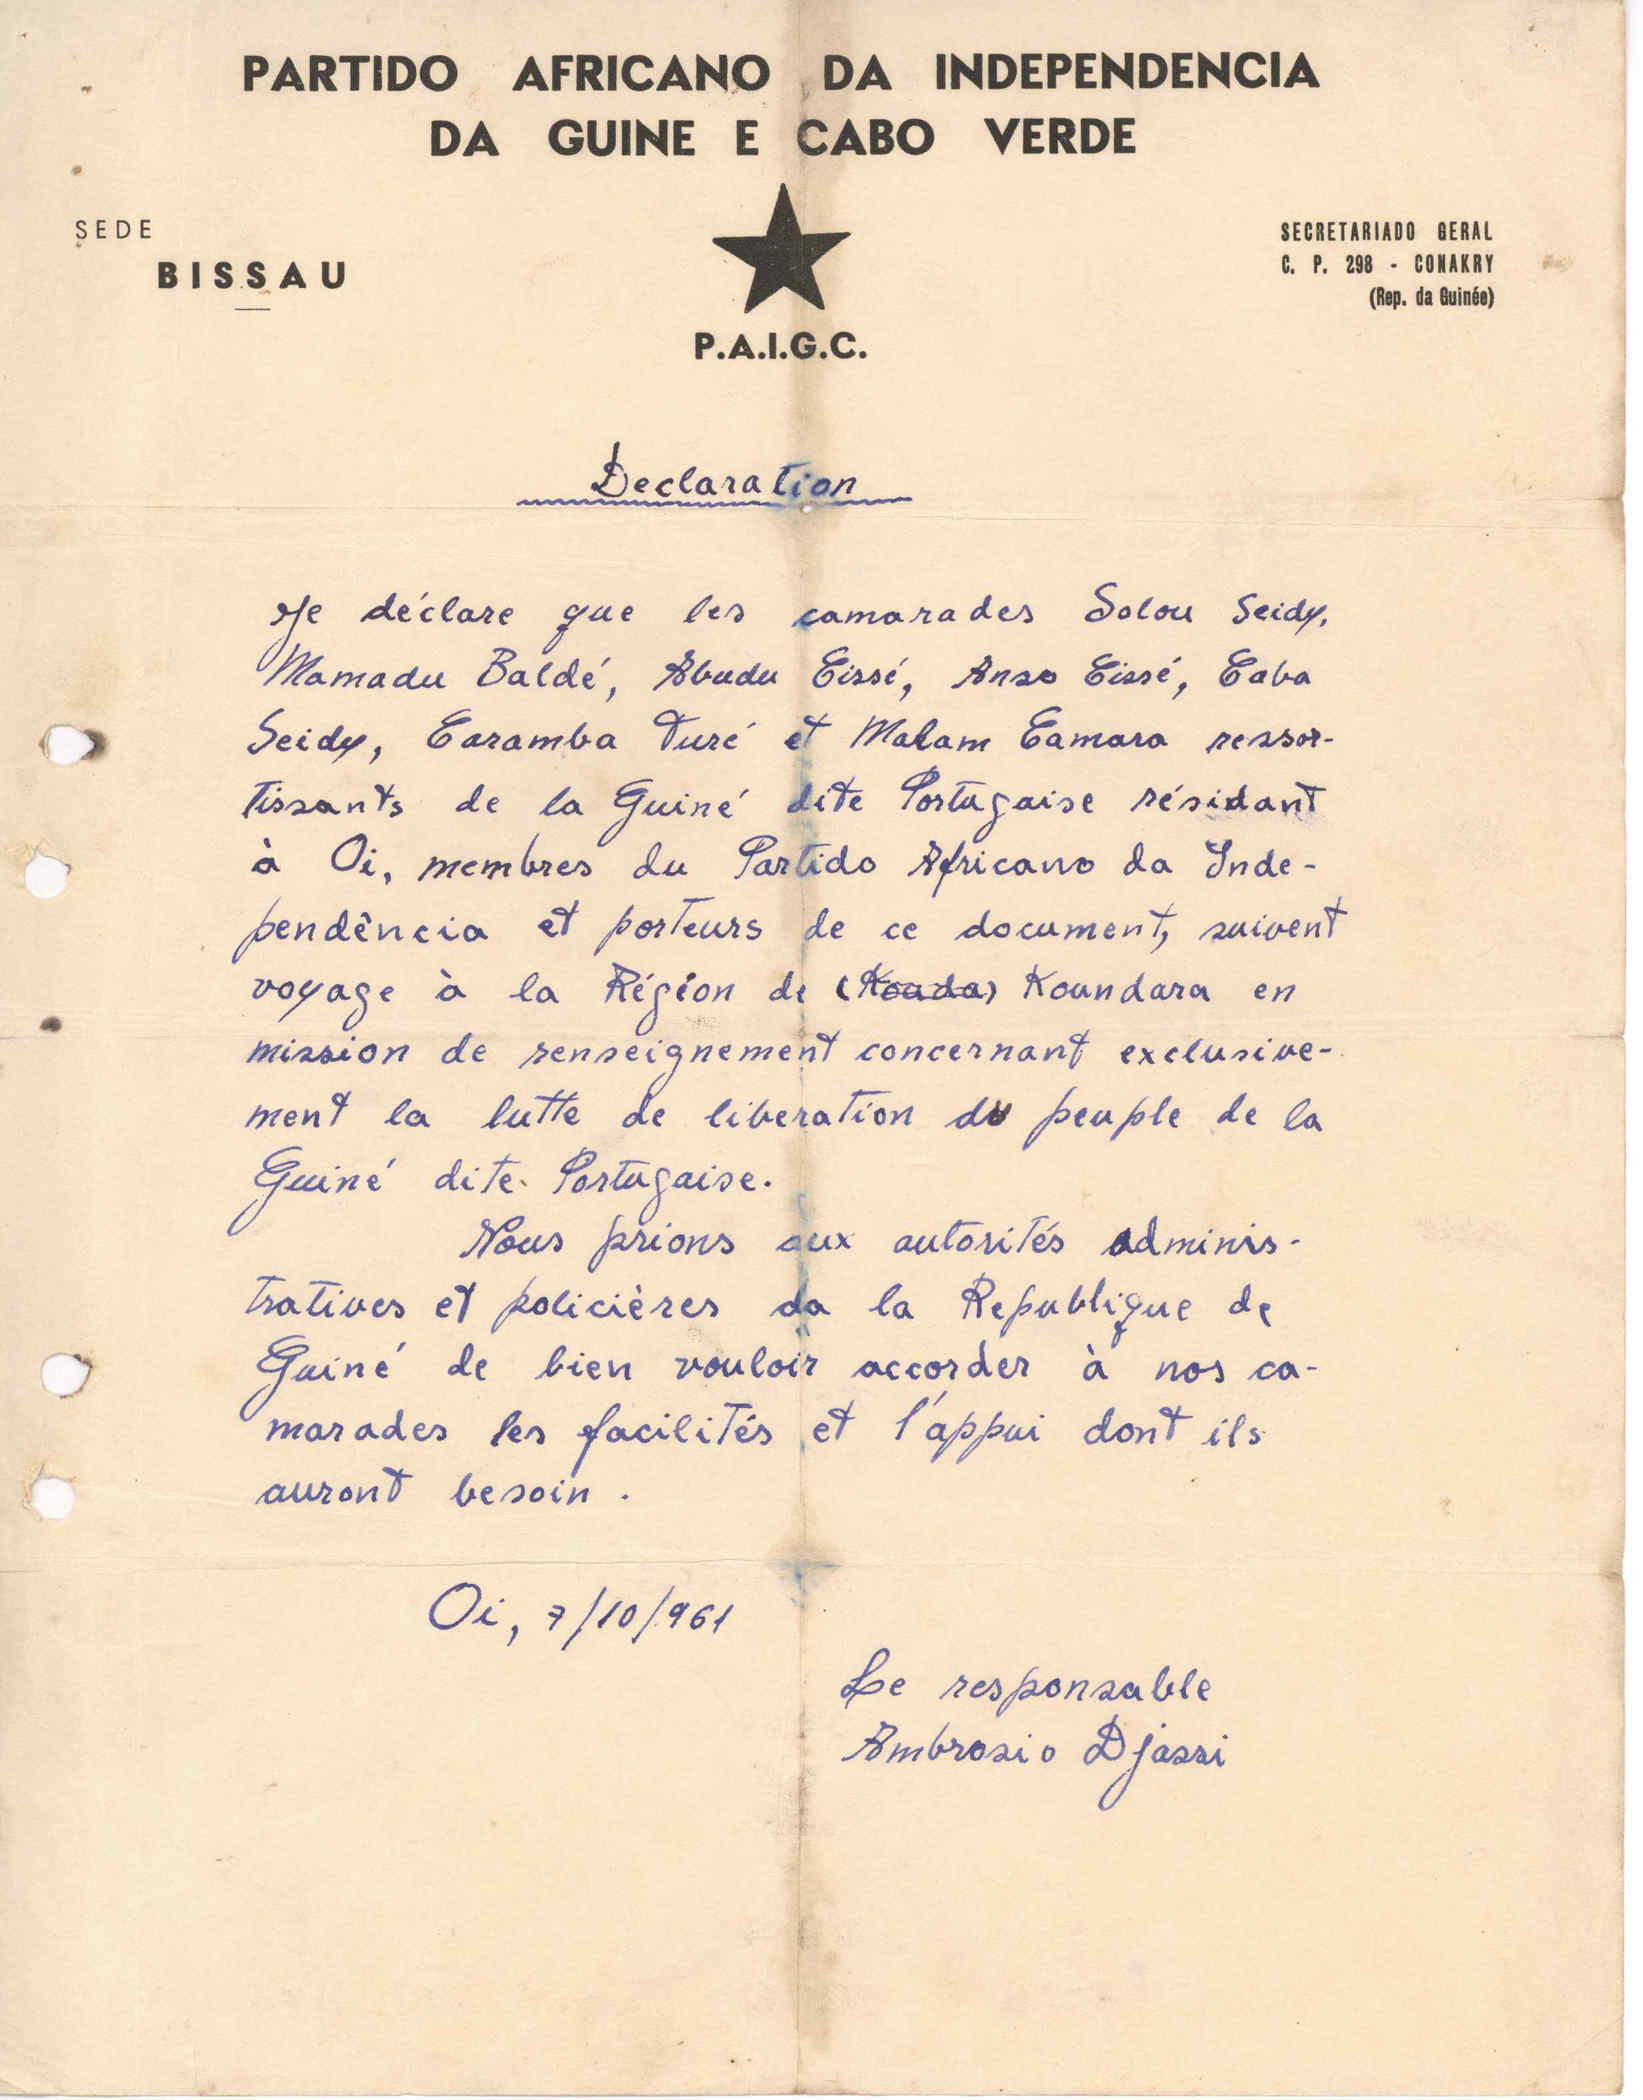 PARTIDO AFRICANO DA INDEPENDENCIA
DA GUINE E CABO VERDE
SEDE
BISSAU
P.A.I.G.C.
SECRETARIADO GERAL
C. P. 298 - CONAKRY
(Rep. da Guinée)
Declaration
Je déclare que les camarades Solou Seidy,
Mamadu Baldé, Abudu Cissé, Anso Cissé, Caba
Seidy, Caramba Turé et Malam Camara ressor-
tissants de la Guiné dite Portugaise résidant
à Oi, membres du Partido Africano da Inde-
pendência et porteurs de ce document, suivent
voyage à la Région de (Kouda) Koundara en
mission de renseignement concernant exclusive-
ment la lutte de liberation du peuple de la
Guiné dite Portugaise.
Nous prions aux autorités adminis-
tratives et policières da la Republique de
Guiné de bien vouloir accorder à nos ca-
marades les facilités et l'appui dont ils
auront besoin.
Oi, 7/10/961
Le responsable
Ambrosio Djassi